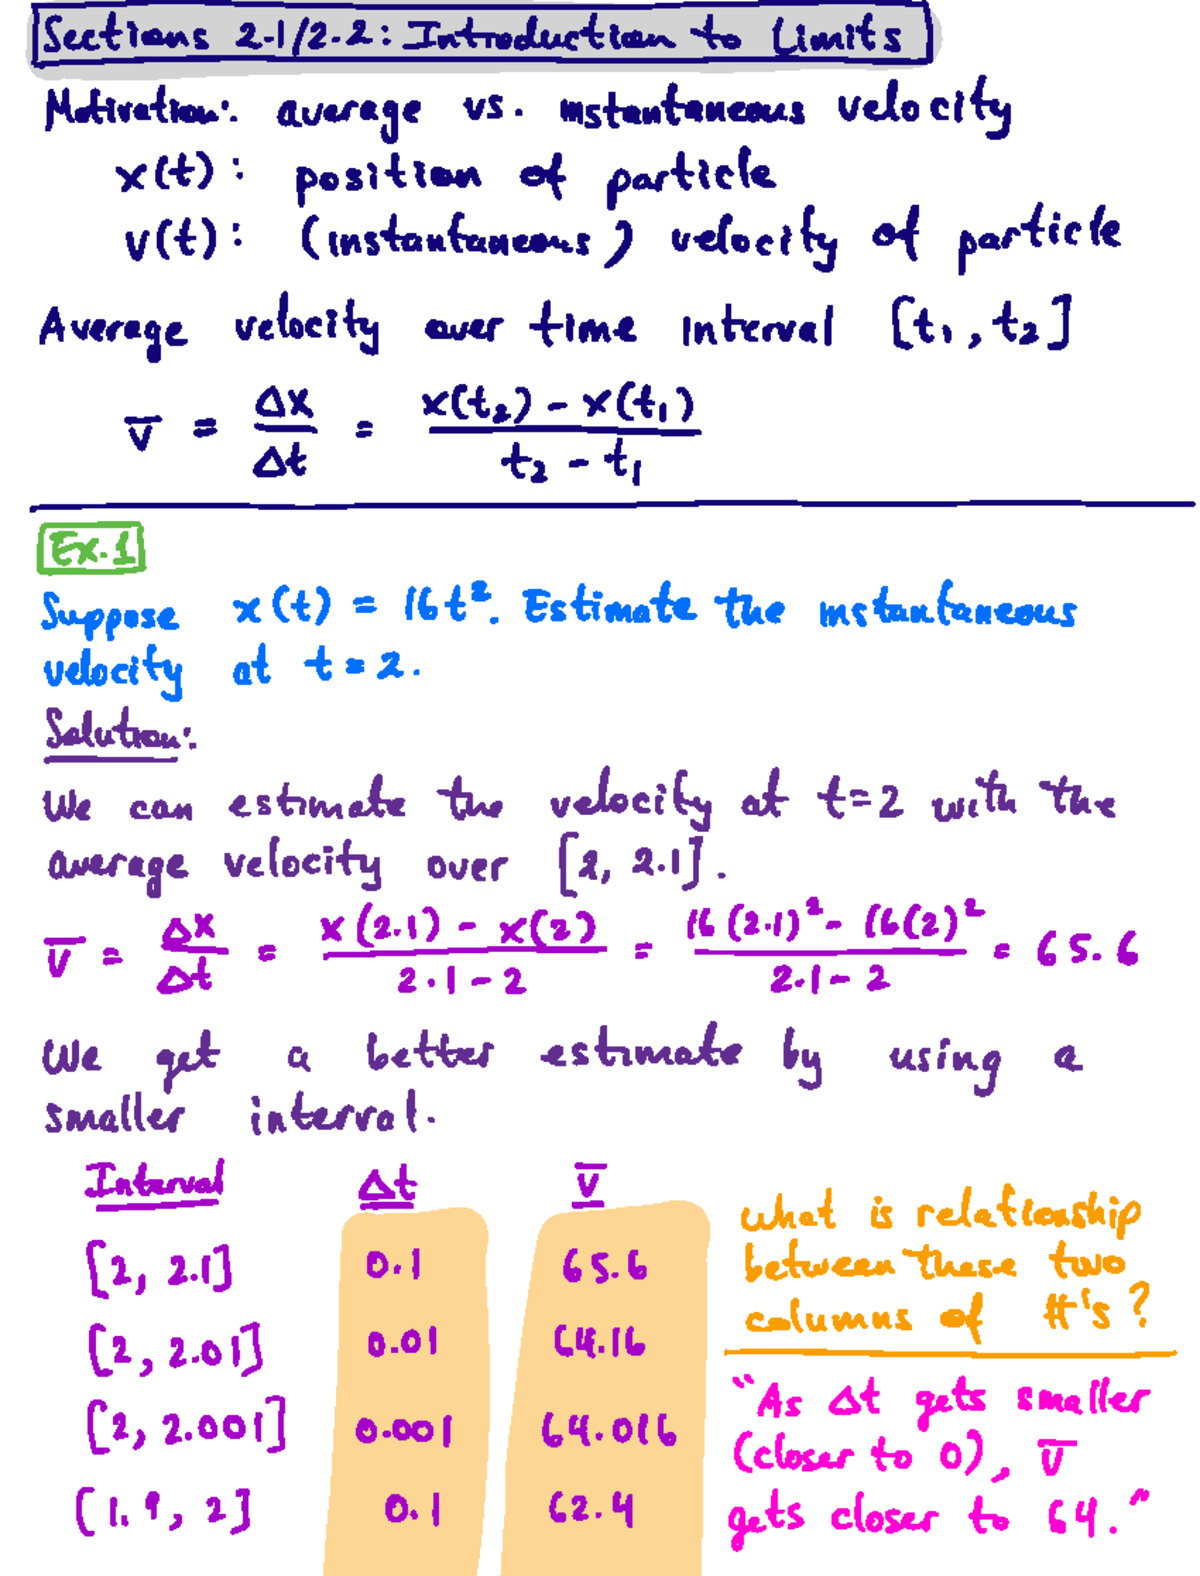 Sections 2.1/2.2: Introduction to Limits
Motivation: average vs. instantaneous velocity
x(t): position of particle
v(t): (instantaneous) velocity of particle
Average velocity over time interval [t₁, t₂]
v̅ = Δx/Δt = (x(t₂) - x(t₁))/(t₂ - t₁)
Ex.1
Suppose x(t) = 16t². Estimate the instantaneous
velocity at t=2.
Solution:
We can estimate the velocity at t=2 with the
average velocity over [2, 2.1].
v̅ = Δx/Δt = (x(2.1) - x(2))/(2.1 - 2) = (16(2.1)² - 16(2)²)/(2.1 - 2) = 65.6
We get a better estimate by using a
smaller interval.
Interval Δt v̅
[2, 2.1] 0.1 65.6
[2, 2.01] 0.01 64.16
[2, 2.001] 0.001 64.016
[1.9, 2] 0.1 62.4
What is relationship
between these two
columns of #'s?
"As Δt gets smaller
(closer to 0), v̅
gets closer to 64."